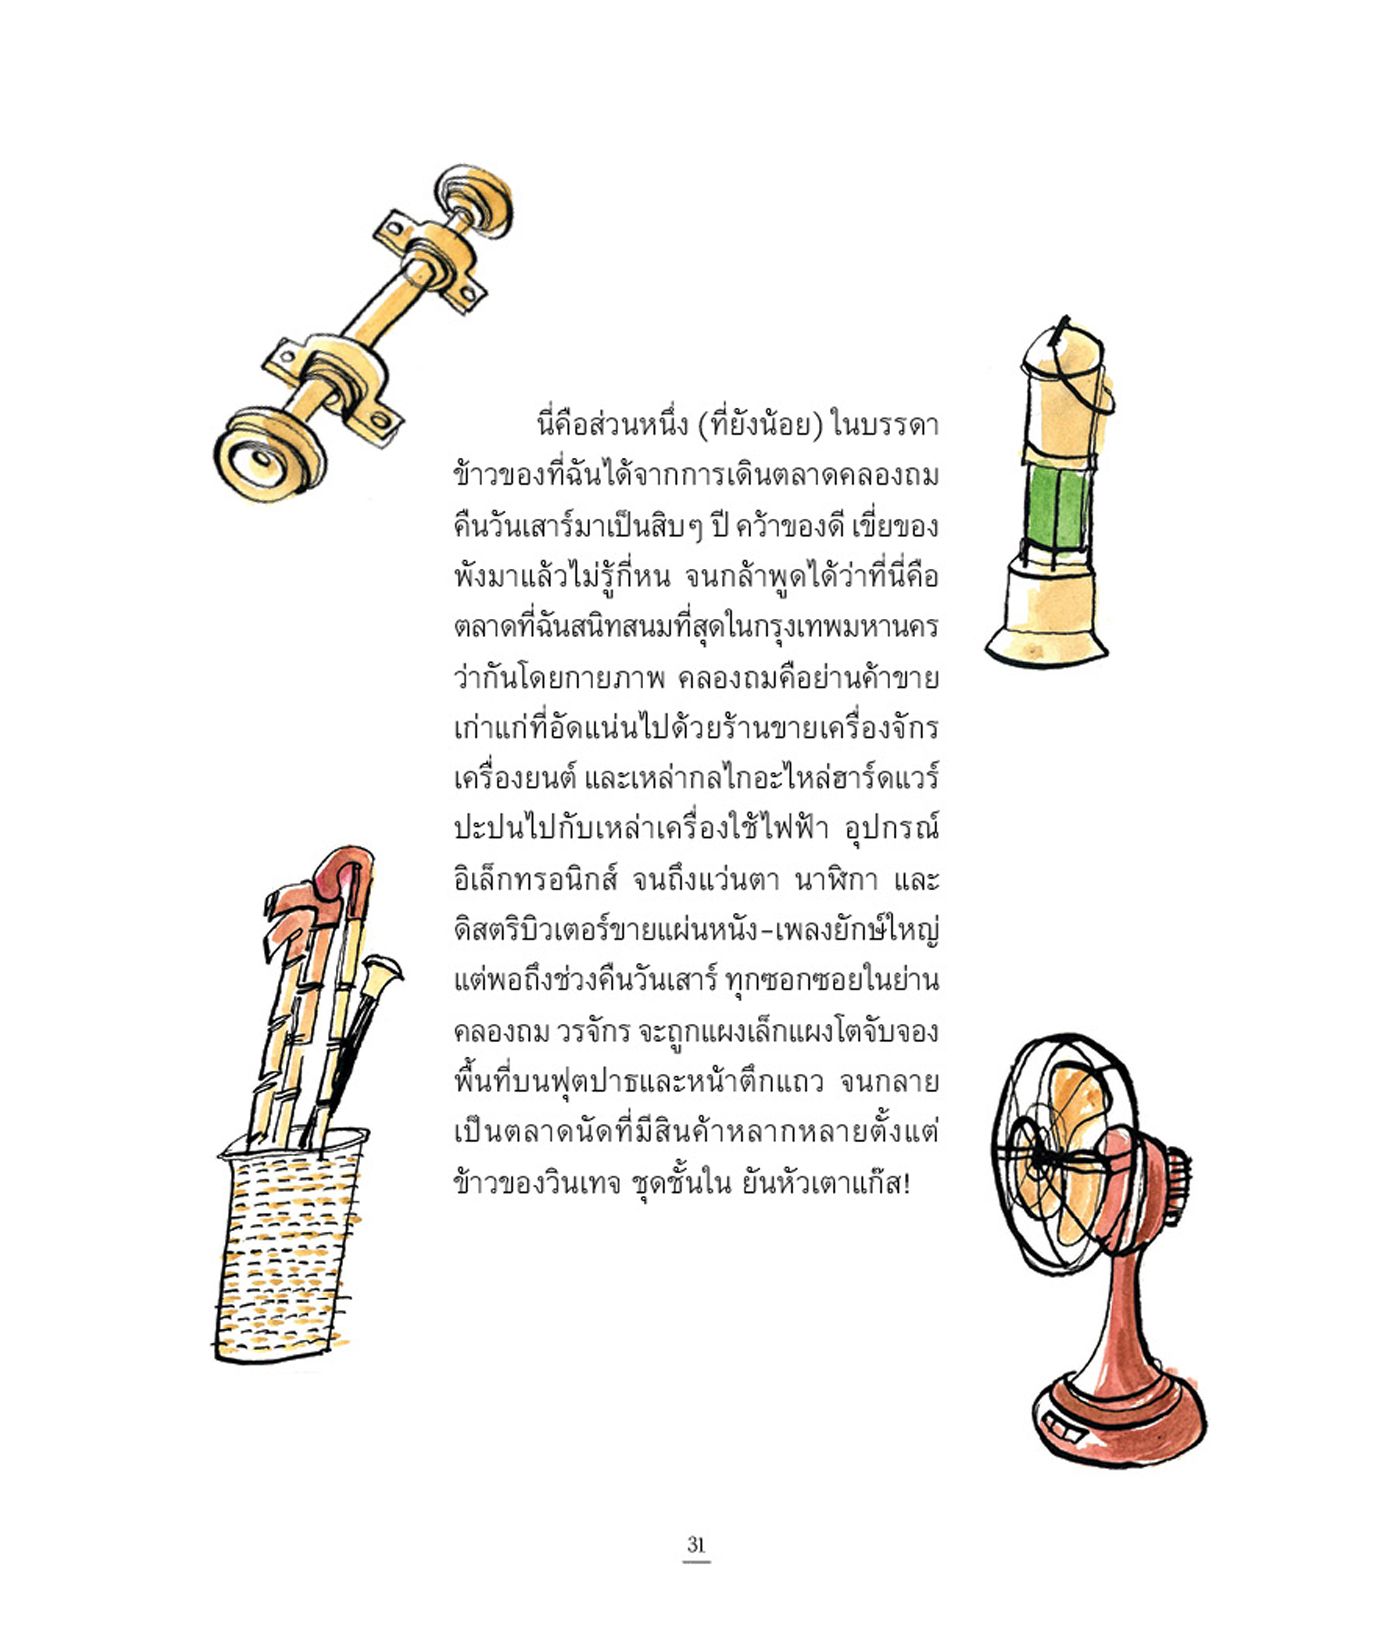 นี่คือส่วนหนึ่ง (ที่ยังน้อย) ในบรรดา
ข้าวของที่ฉันได้จากการเดินตลาดคลองถม
คืนวันเสาร์มาเป็นสิบๆ ปี คว้าของดี เขี่ยของ
พังมาแล้วไม่รู้กี่หน จนกล้าพูดได้ว่าที่นี่คือ
ตลาดที่ฉันสนิทสนมที่สุดในกรุงเทพมหานคร
ว่ากันโดยกายภาพ คลองถมคือย่านค้าขาย
เก่าแก่ที่อัดแน่นไปด้วยร้านขายเครื่องจักร
เครื่องยนต์ และเหล่ากลไกอะไหล่ฮาร์ดแวร์
ปะปนไปกับเหล่าเครื่องใช้ไฟฟ้า อุปกรณ์
อิเล็กทรอนิกส์ จนถึงแว่นตา นาฬิกา และ
ดิสตริบิวเตอร์ขายแผ่นหนัง-เพลงยักษ์ใหญ่
แต่พอถึงช่วงคืนวันเสาร์ ทุกซอกซอยในย่าน
คลองถม วรจักร จะถูกแผงเล็กแผงโตจับจอง
พื้นที่บนฟุตปาธและหน้าตึกแถว จนกลาย
เป็นตลาดนัดที่มีสินค้าหลากหลายตั้งแต่
ข้าวของวินเทจ ชุดชั้นใน ยันหัวเตาแก๊ส!
31